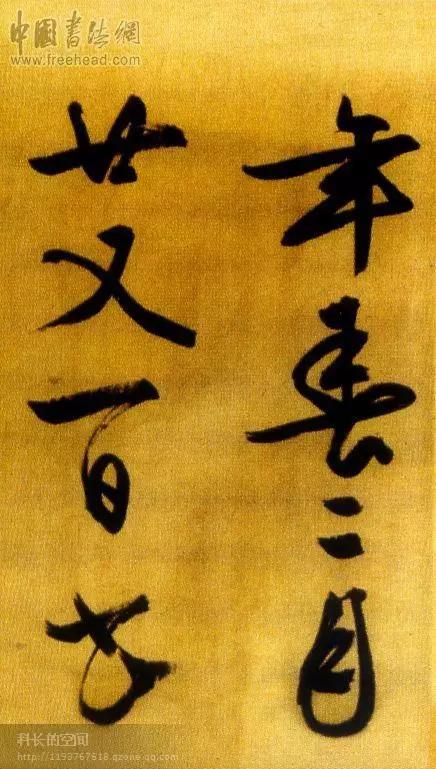 中國書法網
http://www.freehead.com
年春二月
廿又一日
科长的空间
http://1193767518.qzone.qq.com